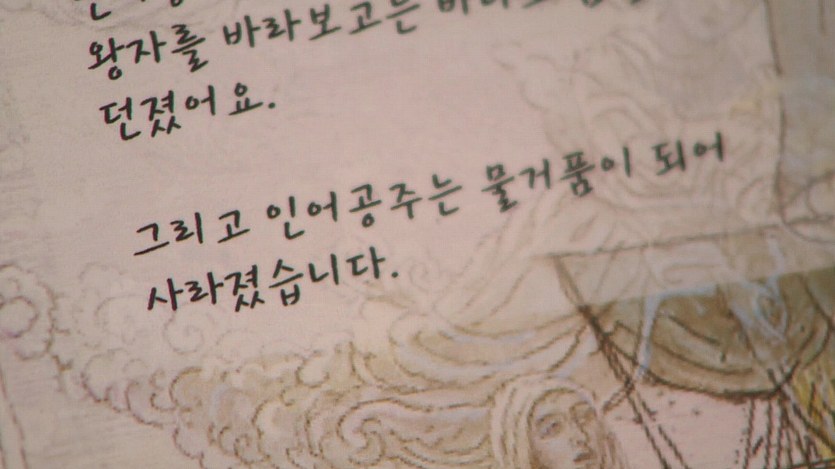 왕자를 바라보고는
던졌어요.
그리고 인어공주는 물거품이 되어
사라졌습니다.